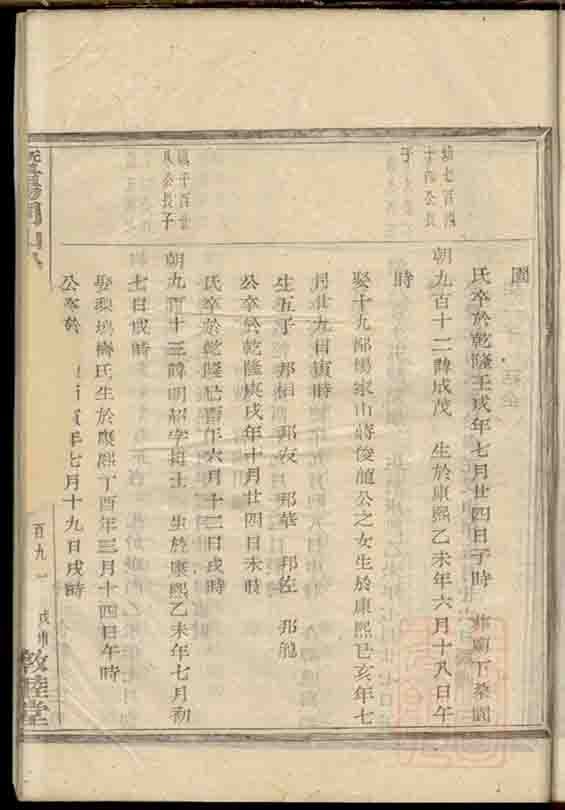 園
氏卒於乾隆壬戌年七月廿四日子時 葬廟下桑園
鎮七百四十四公長子
朝九百十二諱成茂 生於康熙乙未年六月十八日午
時
娶十九都楊家山蔣俊龍公之女生於康熙己亥年七
月廿九日寅時
生五子 邦相 邦友 邦華 邦佐 邦龍
公卒於乾隆庚戌年十月廿四日未時
氏卒於乾隆己酉年六月十二日戌時
鎮千百廿 公長子
朝九百十三諱明紹字搢士 生於康熙乙未年七月初
七日戌時
娶梨塢 氏生於康熙丁酉年三月十四日午時
公卒於 寅年七月十九日戌時
百九一
敦睦堂